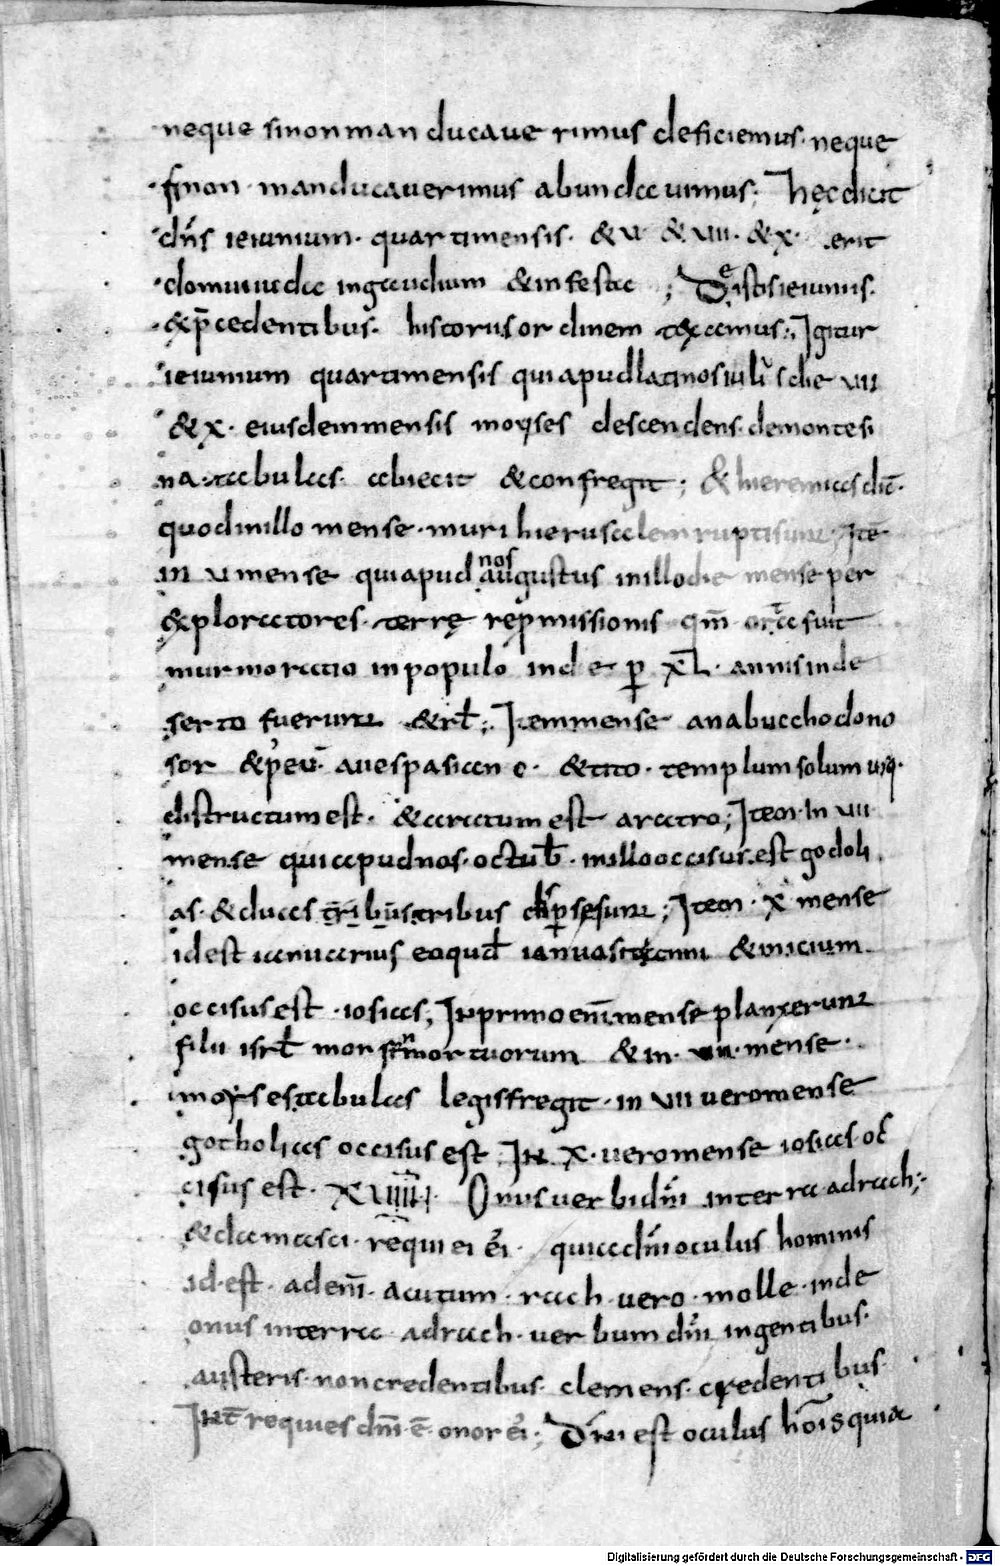 neque sinon manducauerimus deficiemus. neque
sinon manducauerimus abundauimus; Hęc dicit
dn̄s ieiunium. quarti mensis. & u & uii. & x. erit
domui iuda in gaudium & in festa; De istis ieiuniis.
& p̄cedentibus. historiis ordinem texamus; Igitur
ieiunium quarti mensis qui apud latinos iuli' s die uii
& x. eiusdem mensis moyses descendens de monte si
na. tabulas. abiecit & confregit; & hieremias dic̄.
quod in illo mense. muri hierusalem rupti sunt; Itē
in u mense qui apud nos augustus in illo die mense per
& ploratores. terrę repmissionis qm̄ orta suit
murmoratio in populo inde p̄ XL. annis in de
serto fuerunt & rl̄; Item mense a nabucchodono
sor & p' eū. a uespasiano. & tito. templum solum usq.
distructum est. & aratum est aratro; Item. In uii
mense qui apud nos. octub̄. in illo occisus est godoli
as. & duces tribus tribus dispsesunt; Item. x mense
id est ianuarius eo quod ianua sit anni & inicium
occisus est. iosias; In primo enī mense planxerunt
filii isrl̄ mors mortuorum & in. uii. mense.
moyses tabulas legis fregit. in uii uero mense
gotholias occisus est In x. uero mense iosias oc
cisus est. XUIIII. Onus uerbi dn̄i in terra adrach;
& damasci. requiei ei'. quia dn̄i oculus hominis
id est. adem̄. acutum. rach. uero. molle. inde
onus in terra adrach. uerbum dn̄i in gentibus.
austeris. non credentibus. clemens. credentibus.
Int̄ requies dn̄i ē onor ei'; Dn̄i est oculus hōis quia
Digitalisierung gefördert durch die Deutsche Forschungsgemeinschaft - DFG